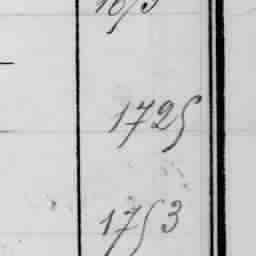 1725
1753